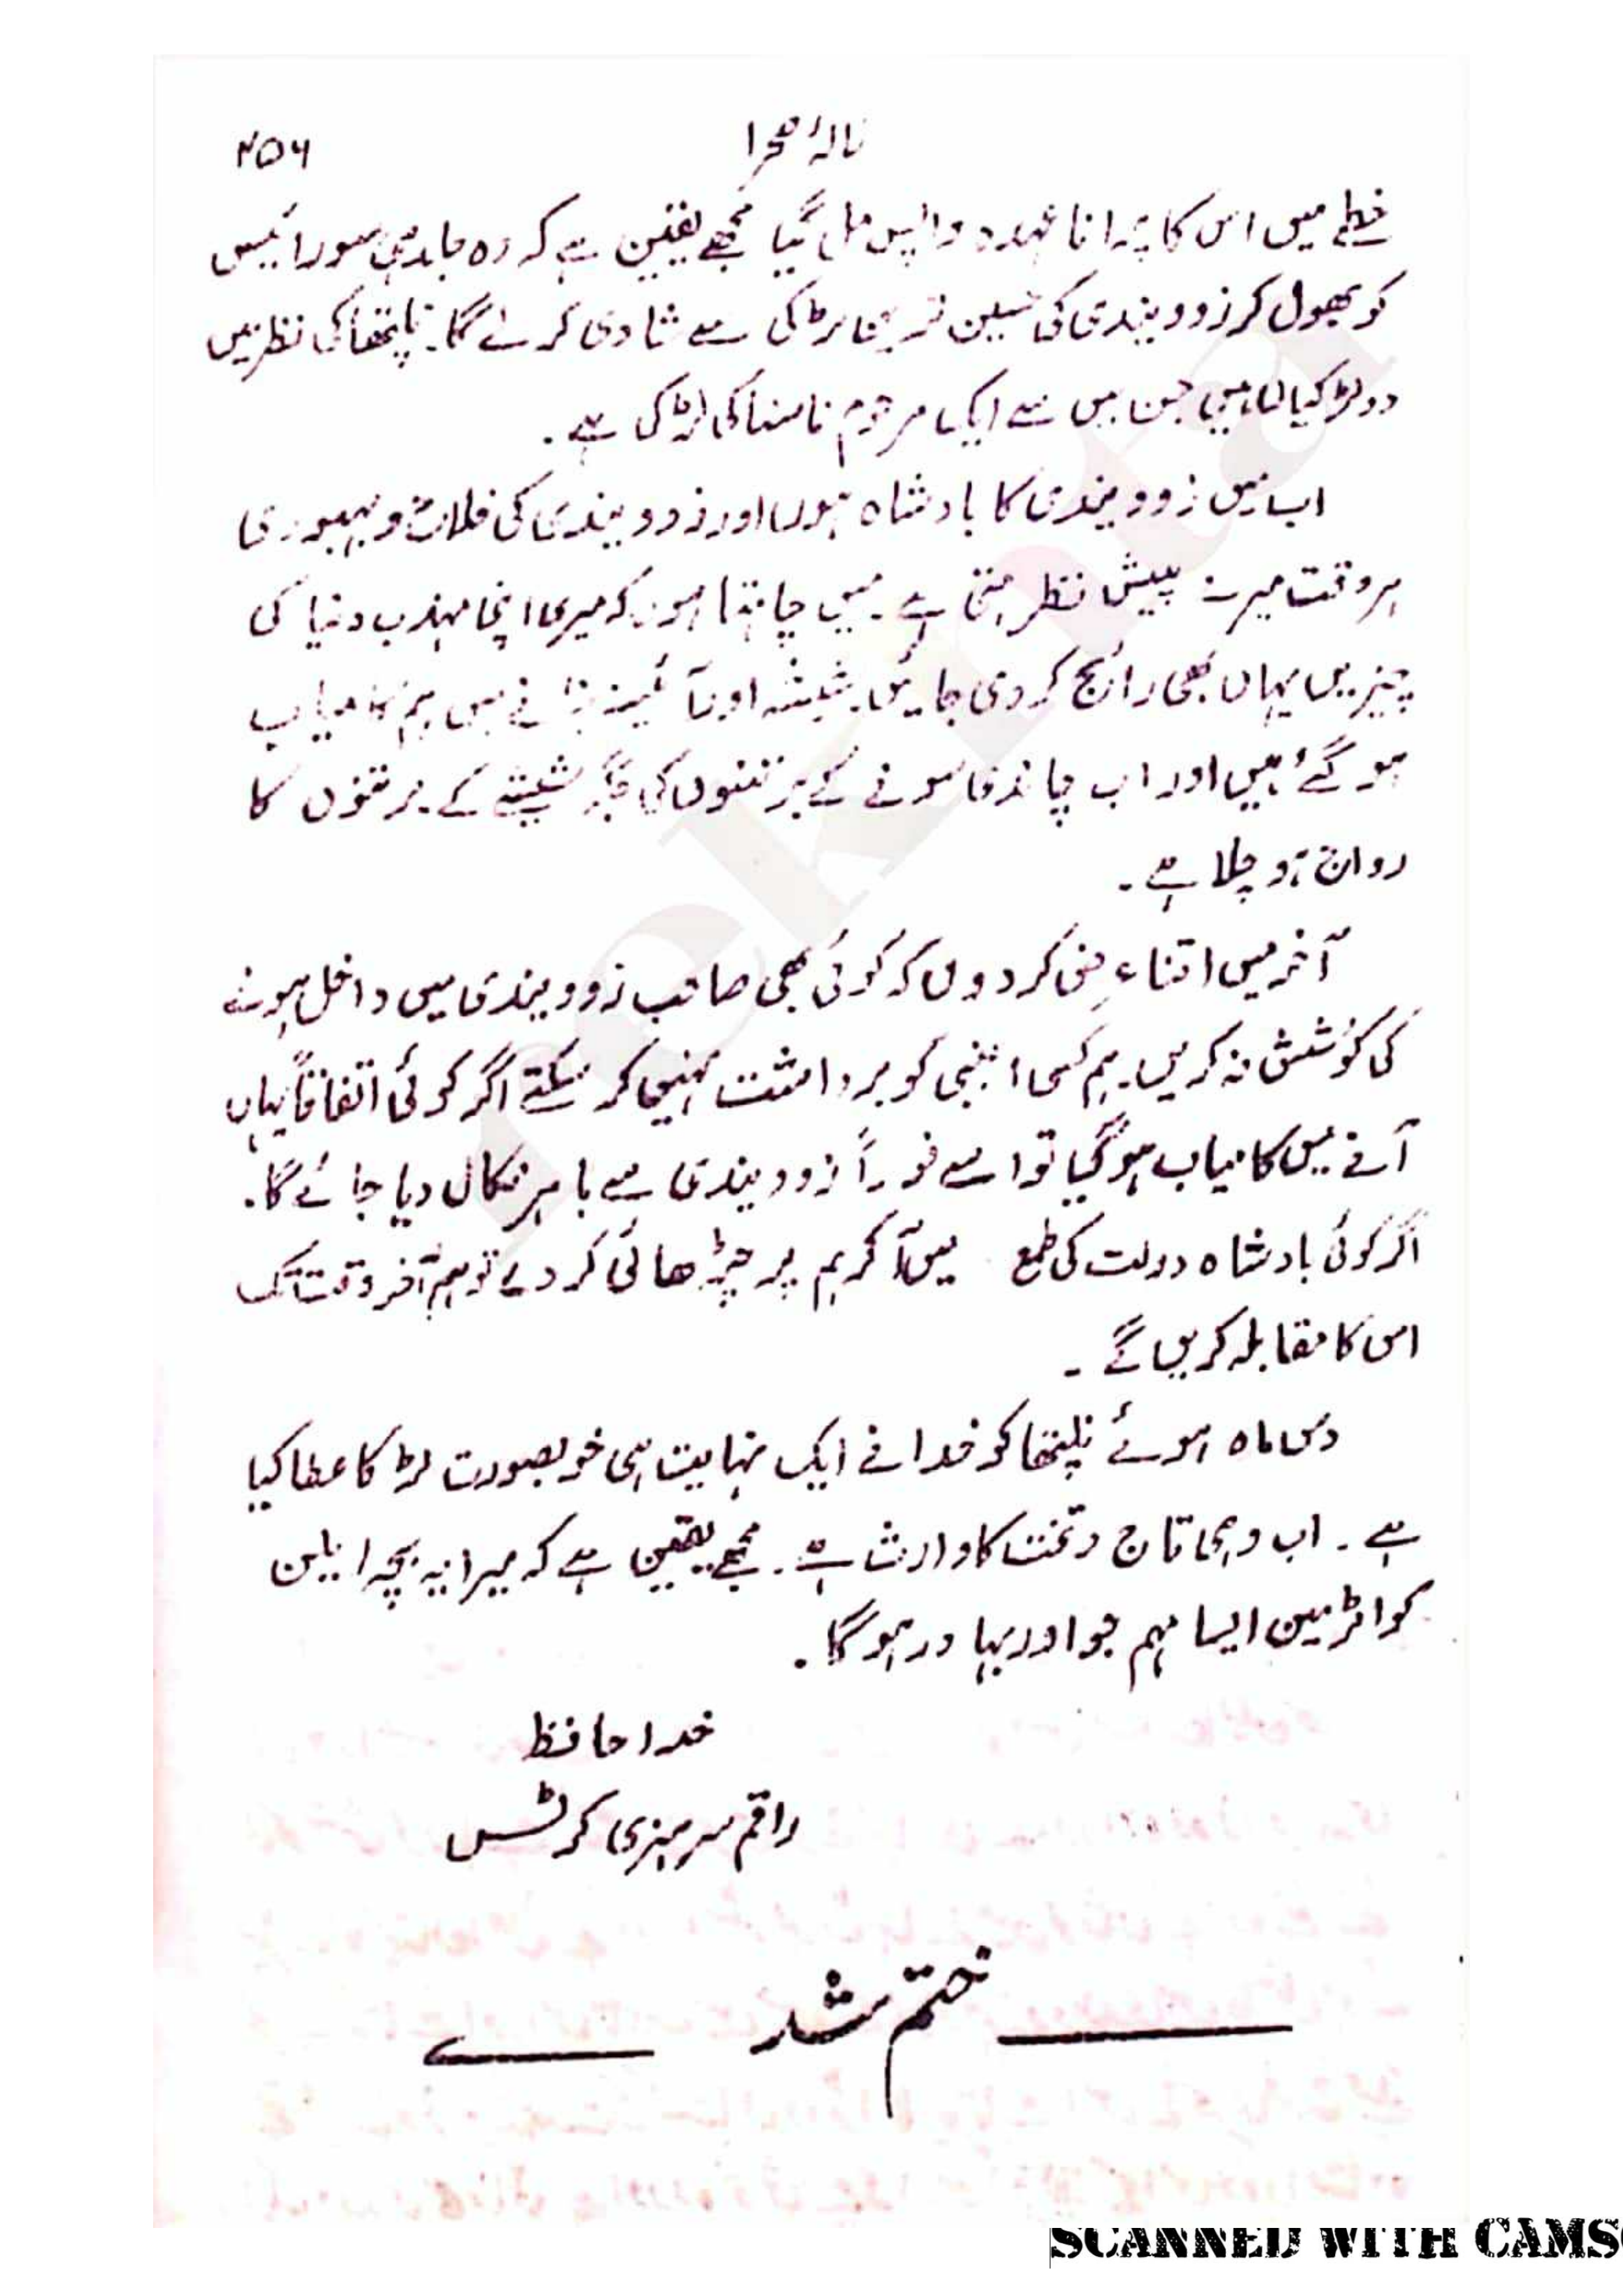 ۴۵۶
نالۂ صحرا
خطے میں اس کا پرانا عہدہ واپس مل گیا مجھے یقین ہے کہ وہ جلد ہی سورائیس
کو بھول کر زوویندی کی حسین ترین لڑکی سے شادی کر لے گا۔ نلپتھا کی نظر میں
دو لڑکیاں ہیں جن میں سے ایک مرحوم ناسٹا کی لڑکی ہے۔
اب میں زوویندی کا بادشاہ ہوں اور زوویندی کی فلاح و بہبودی
ہر وقت میرے پیش نظر رہتی ہے۔ میں چاہتا ہوں کہ میری اپنی مہذب دنیا کی
چیزیں یہاں بھی رائج کر دی جائیں۔ شیشہ اور آئینہ بنانے میں ہم کامیاب
ہو گئے ہیں اور اب چاندی سونے کے برتنوں کی جگہ شیشے کے برتنوں کا
رواج ہو چلا ہے۔
آخر میں اتنا عرض کر دوں کہ کوئی بھی صاحب زوویندی میں داخل ہونے
کی کوشش نہ کریں۔ ہم کسی اجنبی کو برداشت نہیں کر سکتے اگر کوئی اتفاقاً یہاں
آنے میں کامیاب ہو گیا تو اسے فوراً زوویندی سے باہر نکال دیا جائے گا۔
اگر کوئی بادشاہ دولت کی طمع میں آ کر ہم پر چڑھائی کر دے تو ہم آخر وقت تک
اس کا مقابلہ کریں گے۔
دس ماہ ہوئے نلپتھا کو خدا نے ایک نہایت ہی خوبصورت لڑکا عطا کیا
ہے۔ اب وہی تاج و تخت کا وارث ہے۔ مجھے یقین ہے کہ میرا یہ بچہ ایلن
کواٹرمین ایسا مہم جو اور بہادر ہو گا۔
خدا حافظ
راقم سر ہنری کرٹس
ختم شد
SCANNED WITH CAMS
rekhta